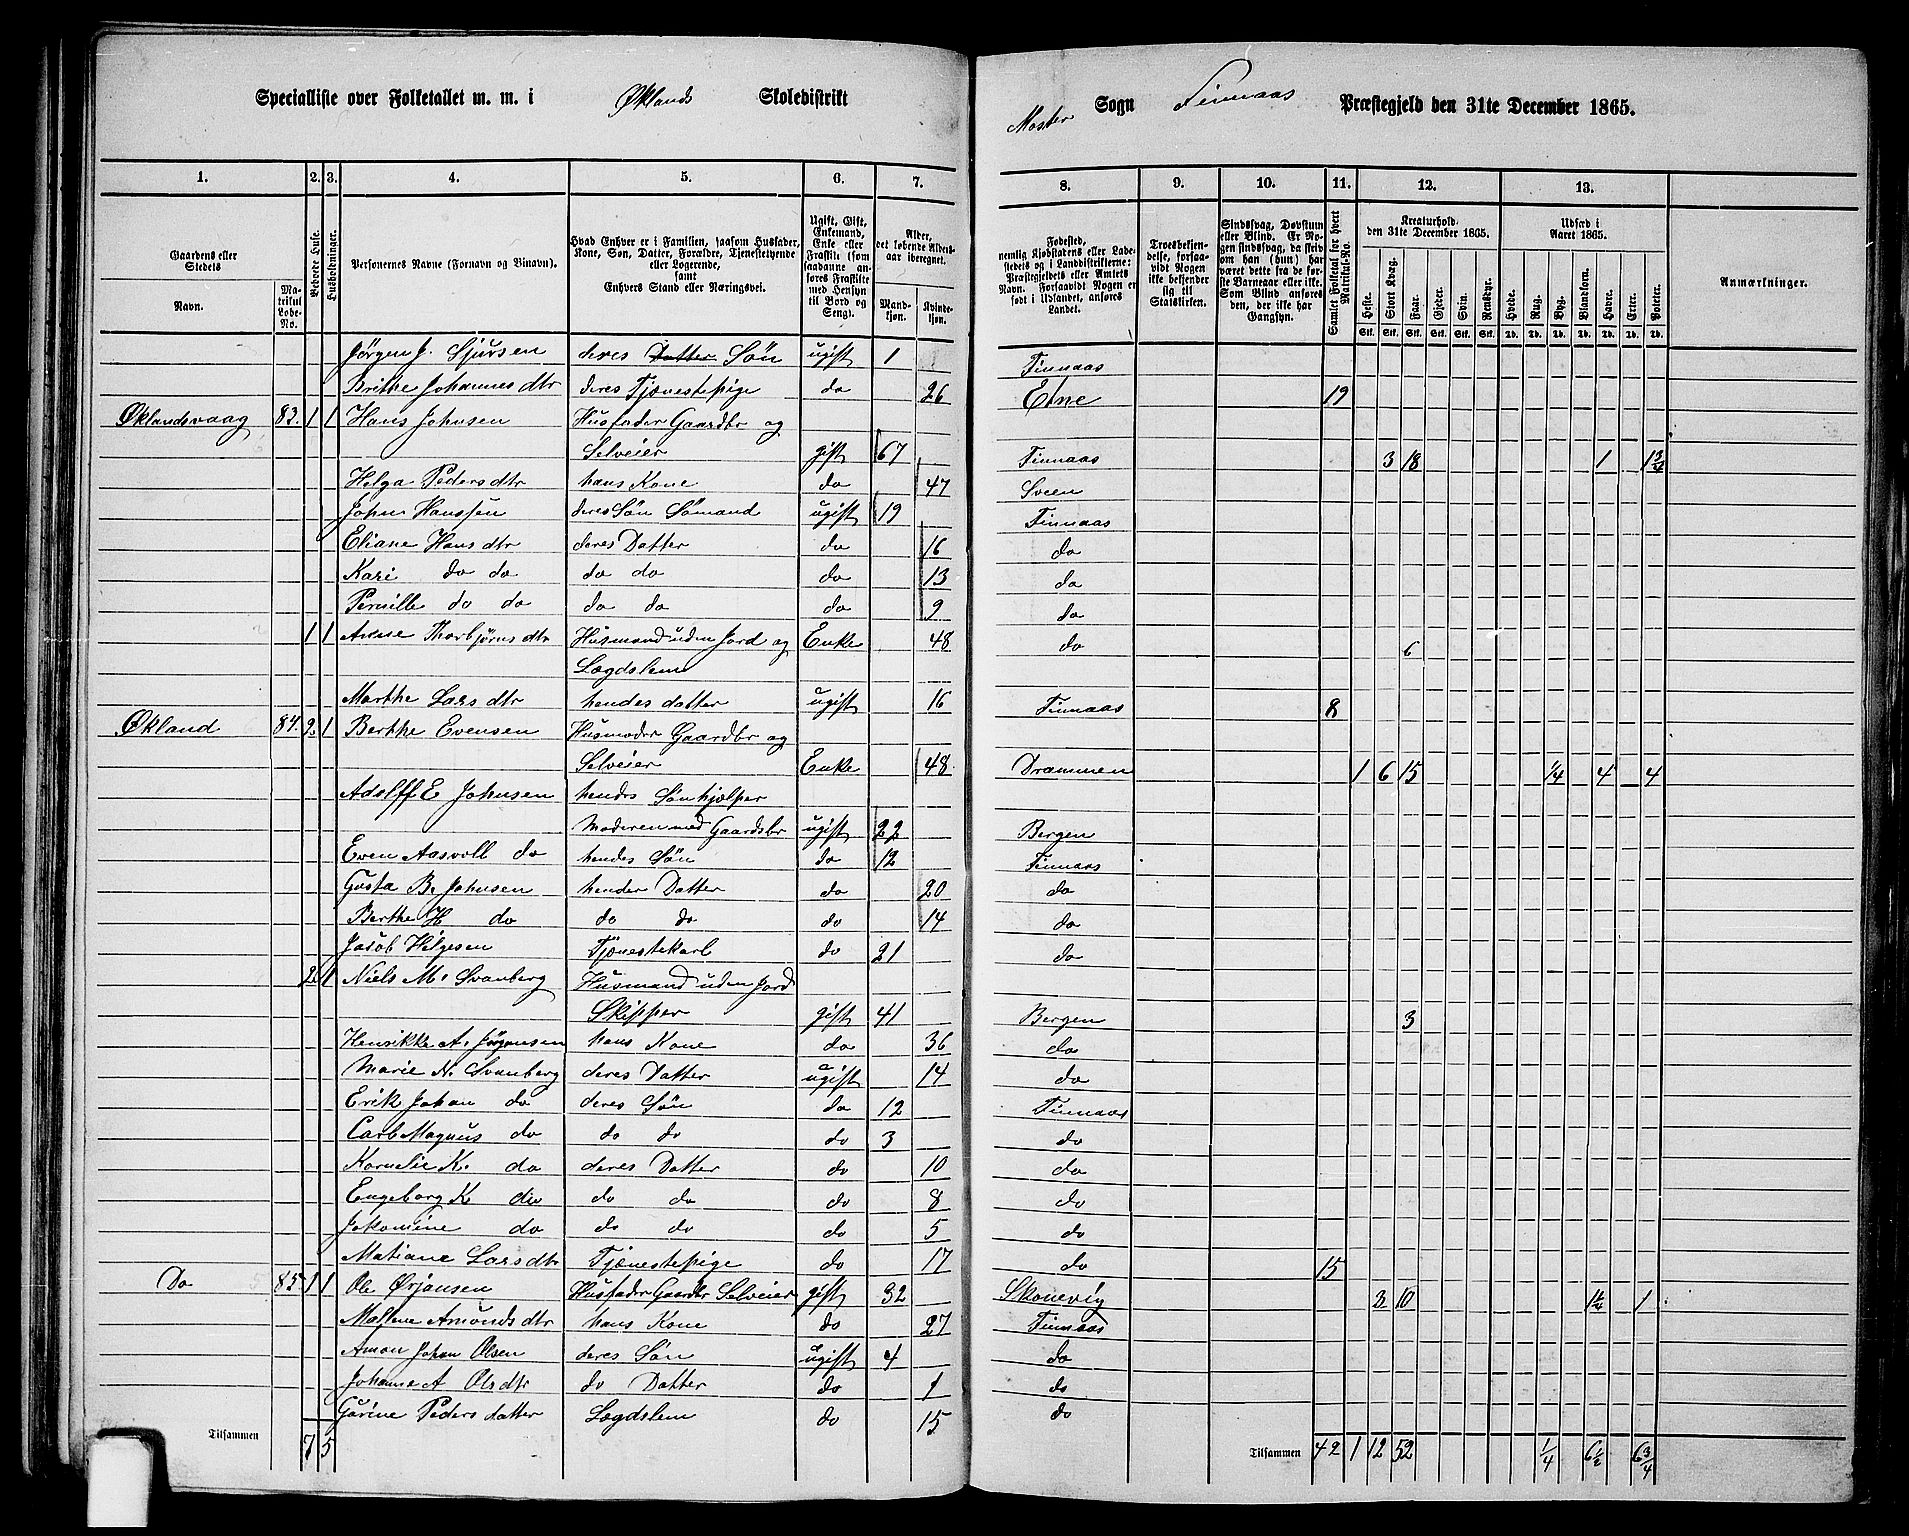 Specialliste over Folketallet m. m. i Øklands Skoledistrikt
Moster Sogn Finnaas Præstegjeld den 31te December 1865.
1. 2. 3. 4. 5. 6. 7. 8. 9. 10. 11. 12. 13.
Gaardens eller Stedets
Navn. Matrikul Løbe-No.
Beboede Huse.
Husholdninger.
Personernes Navne (Fornavn og Binavn).
Hvad Enhver er i Familien, saasom Husfader, Kone, Søn, Datter, Forældre, Tjenestetyende eller Logerende, samt Enhvers Stand eller Næringsvei.
Ugift, Gift, Enkemand, Enke eller Fraskilt (som saadanne anføres Fraskilte med Hensyn til Bord og Seng).
Alder, det løbende Aldersaar iberegnet.
Mandkjøn. Kvindekjøn.
Fødested, nemlig Kjøbstadens eller Ladestedets og i Landdistrikterne: Præstegjeldets eller Amtets Navn. Forsaavidt Nogen er født i Udlandet, anføres Landet.
Troesbekjendelse, forsaavidt Nogen ikke bekjender sig til Statskirken.
Sindssvag, Døvstum eller Blind. Er Nogen sindssvag, da skrives om han (hun) har været dette fra de første Barneaar eller ikke. Som Blind anføres den, der ikke har Gangsyn.
Samlet Folketal for hvert Matrikul-No.
Kreaturhold den 31te December 1865.
Heste. Stort Kvæg. Faar. Gjeter. Svin. Rensdyr.
Udsæd i Aaret 1865.
Hvede. Rug. Byg. Blandkorn. Havre. Erter. Poteter.
Anmærkninger.
Jørgen J. Sjursen deres Datter Søn ugift 1 Finnaas
Brithe Johannesdtr deres Tjænestepige do 26 Etne 19
Øklandsvaag 83. 1 1 Hans Johnsen Husfader Gaardbr og
Selveier gift 67 Finnaas 3 18 1 1 3/4
Helga Pedersdtr hans Kone do 47 Sveen
John Hanssen deres Søn Sømand ugift 19 Finnaas
Eliane Hansdtr deres Datter do 16 do
Kari do do do do do 13 do
Pernille do do do do do 9 do
1 1 Anne Thorbjørnsdtr Husmand uden Jord og Enke 48 do 6
Lægdslem
Marthe Larsdtr hendes datter ugift 16 Finnaas 8
Økland 84. 2 1 Berthe Evensen Husmoder Gaardbr og
Selveier Enke 48 Drammen 1 6 15 1/4 4 4
Adolff E Johnsen hendes Søn hjælper
Moderen med Gaardsbr ugift 22 Bergen
Even Aasvoll do hendes Søn do 12 Finnaas
Gusta B. Johnsen hendes Datter do 20 do
Berthe H do do do do 14 do
Jacob Helgesen Tjænestekarl do 21 do
2 1 Niels M. Svanberg Husmand uden Jord
Skipper gift 41 Bergen 3
Henrikke A. Jørgensen hans Kone do 36 do
Marie N. Svanberg deres Datter ugift 14 do
Erik Johan do deres Søn do 12 Finnaas
Carl Magnus do do do do 3 do
Kornelie K. do deres Datter do 10 do
Engeborg K do do do do 8 do
Jakomine do do do do 5 do
Matiane Larsdtr Tjænestepige do 17 do 15
Do 85 1 1 Ole Ørjansen Husfader Gaardbr Selveier gift 32 Skonevig 3 10 1 1/4 1
Mallene Amundsdtr hans Kone do 27 Finnaas
Amon Johan Olsen deres Søn ugift 4 do
Johanne A Olsdtr do Datter do 1 do
Gurine Pedersdatter Lægdslem do 15 do
Tilsammen 7 5 Tilsammen 42 1 12 52 1/4 6 1/2 6 3/4